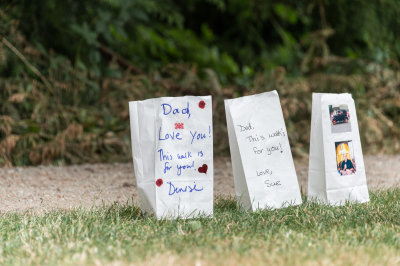 Dad,
Love You!
This walk is
for you!
Denise
Dad,
This walk's
for you!
Love,
Sue